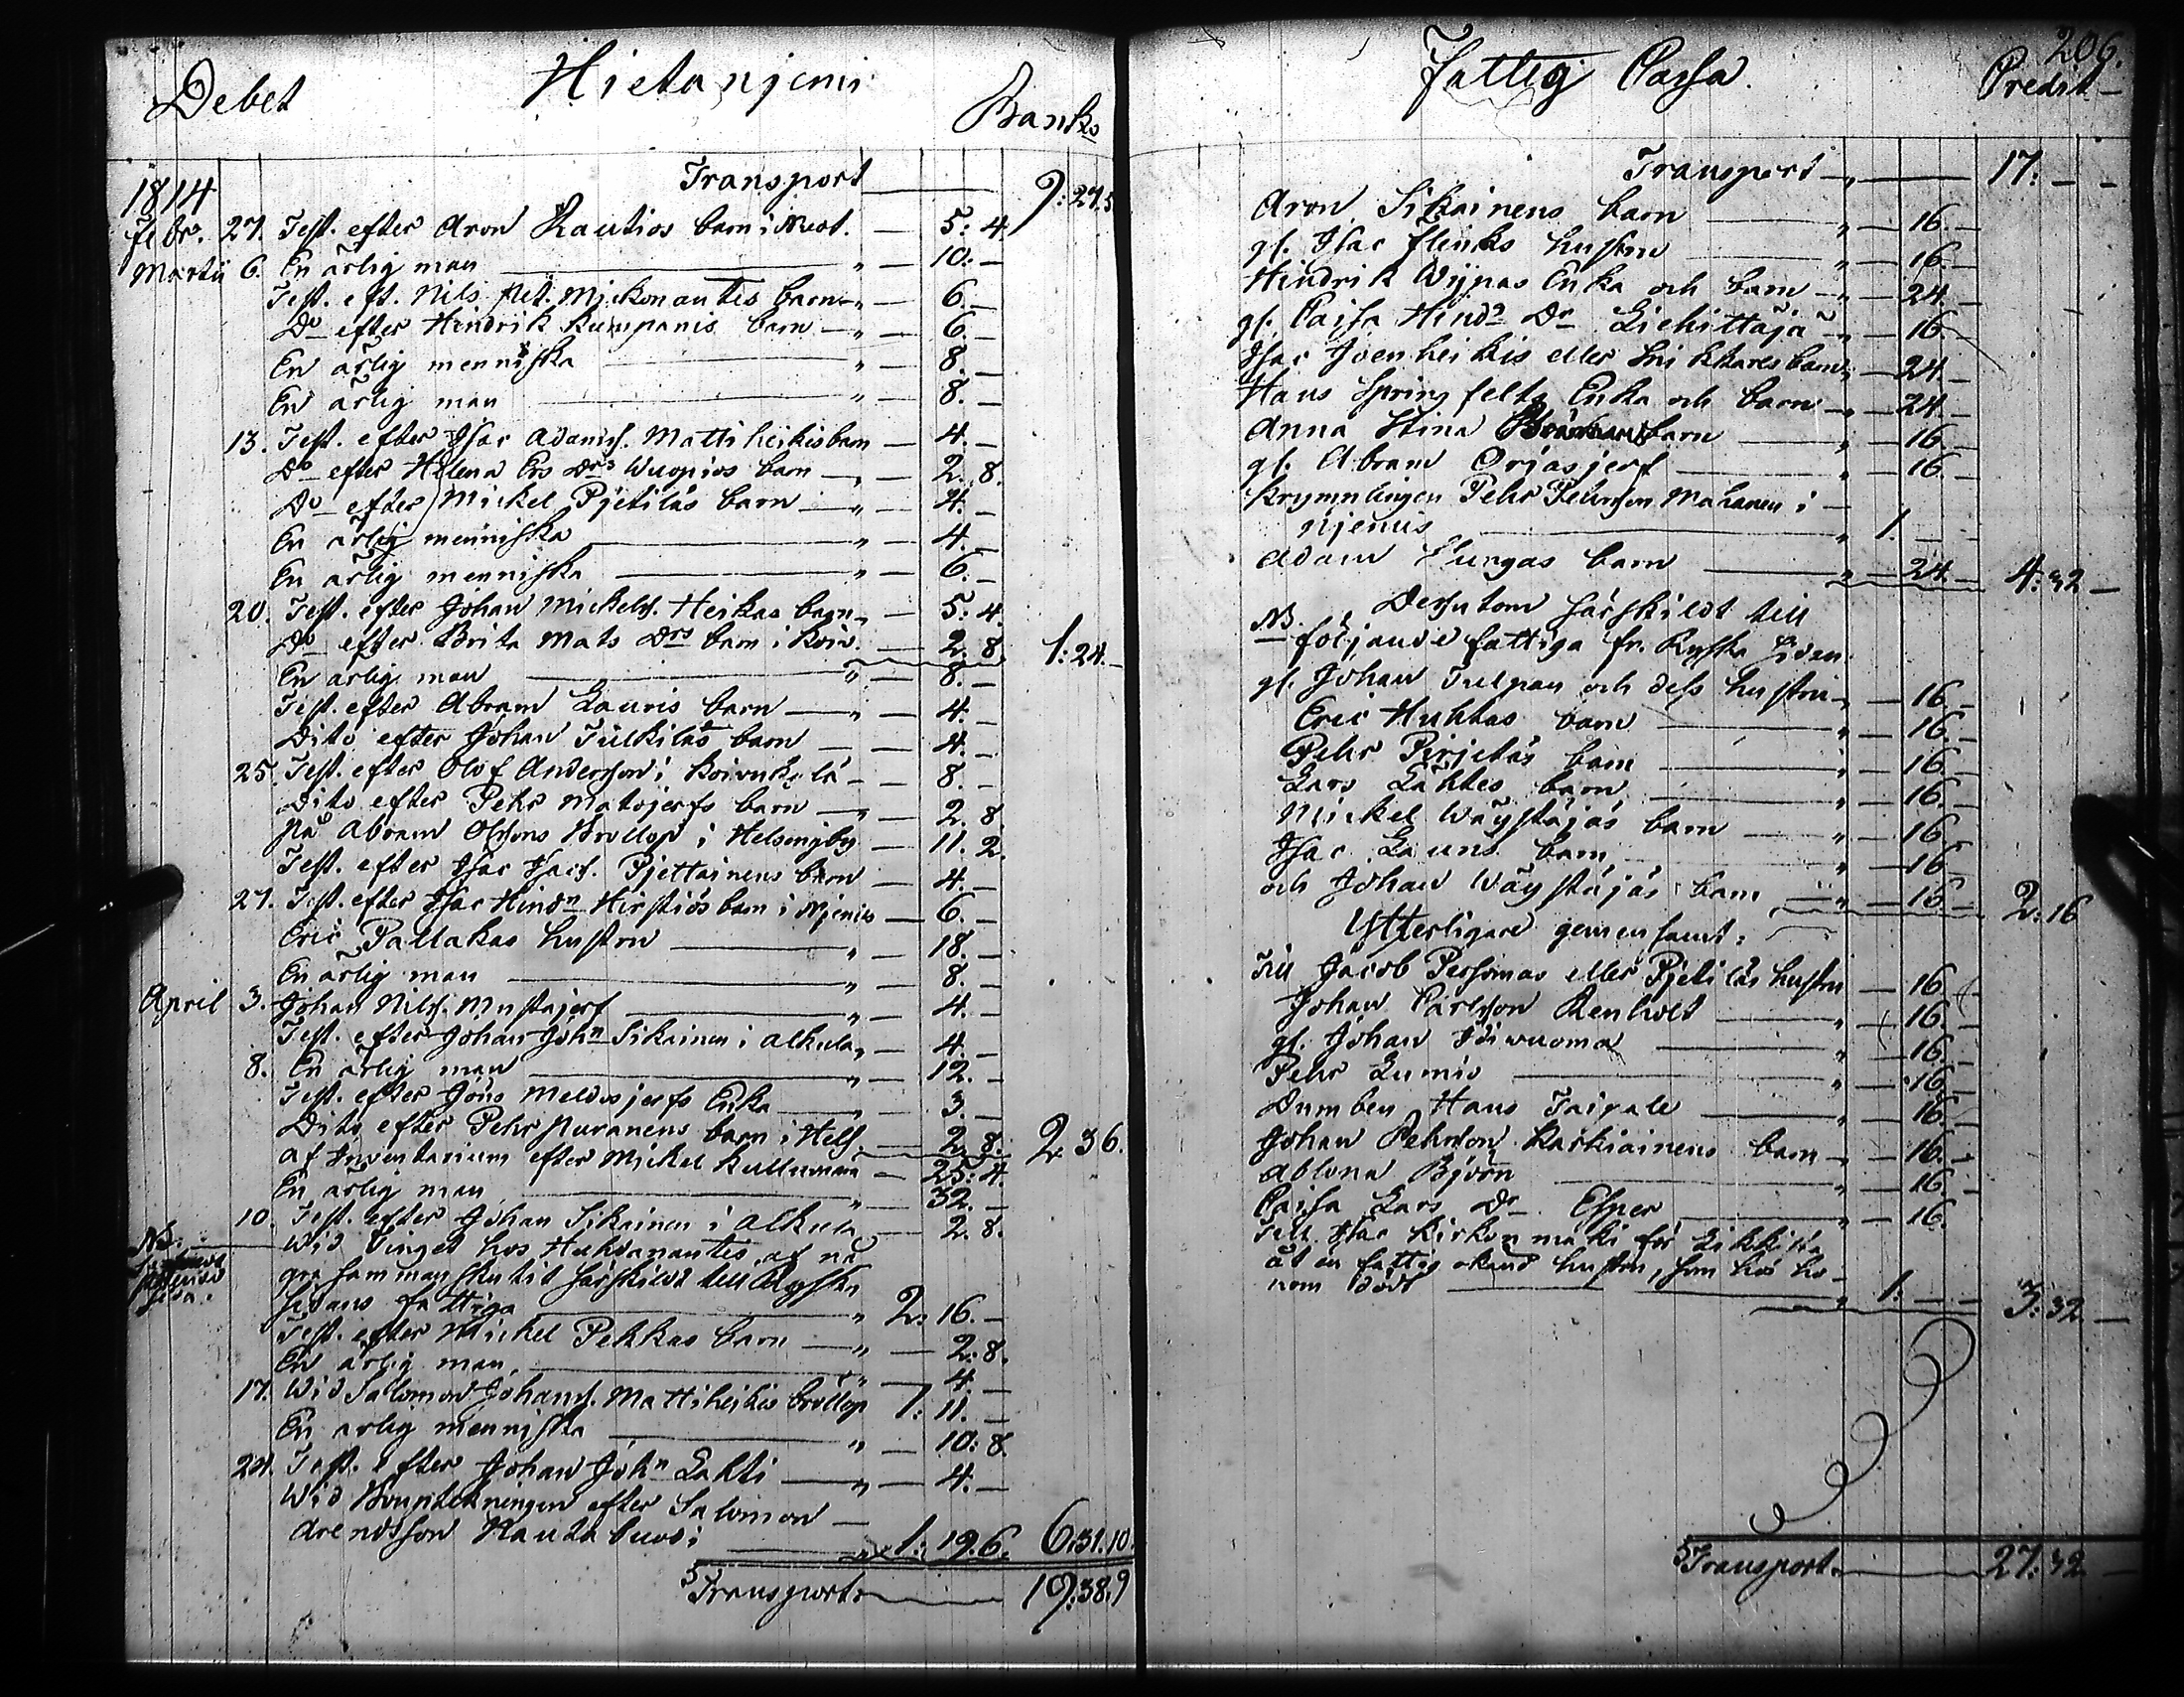 Debet Hietanjemi Banko
1814 Transport 9: 27.5
Febr. 27. Test. efter Aron Rautios barn i Kuot. 5: 4
Martii 6. En ärlig man 10: —
Test. eft. Nils Pet. Mickonantis barn 6. —
Do efter Hindrik Kumpanis barn 6. —
En ärlig menniska 8. —
En ärlig man 8. —
13. Test. efter Isac Adamss. Mattiheikis barn 4. —
Do efter Helena Ers Drs Wuopios barn 2. 8.
Do efter Mickel Pjetiläs barn 4. —
En ärlig menniska 4. —
En ärlig menniska 6. —
20. Test. efter Johan Mickelss. Heikas barn 5: 4.
Do efter Brita Mats Drs barn i Koiv. 2. 8 1: 24. —
En ärlig man 8. —
Test. efter Abram Lauris barn 4. —
Dito efter Johan Tulkiläs barn 4. —
25. Test. efter Olof Andersson i Koivukylä 8. —
Dito efter Pehr Matojerfs barn 2. 8.
På Abram Olssons Bröllop i Helsingby 11. 2.
Test. efter Isac Isacs. Pjettainens barn 4. —
27. Test. efter Isac Hindn Hirstiös barn i Njemis 6. —
Eric Pallakas hustru 18. —
En ärlig man 8. —
April 3. Johan Nilss. Mustajerf 4. —
Test. efter Johan John Sikainen i Alkula 4. —
8. En ärlig man 12. —
Test. efter Jöns Meldosjerfs Enka 3. —
Dito efter Pehr Puranens barn i Hels. 2. 8. 2. 36.
af Inventarium efter Mickel Kullumaa 25: 4.
En ärlig man 32. —
10. Test. efter Johan Sikainen i Alkula 2. 8.
NB. Wid Tinget hos Huhdanantis af nå
gra sammanskutit särskildt till Ryska
sidans fattiga 2: 16. —
Test. efter Mickel Pekkas barn 2: 8.
En ärlig man 4. —
17. Wid Salomon Johanss. Mattiheikis bröllop 1: 11. —
En ärlig menniska 10: 8.
24. Test. efter Johan John Lahti 4. —
Wid Bouptekningen efter Salomon
Arendsson Rautabuodi 1: 19. 6. 6: 31. 10.
Transport 19: 38. 9
206.
Fattig Cassa. Credit
Transport 17: — —
Aron Sikainens barn 16. —
gl. Isac Flinks hustru 16. —
Hindrik Wijnas Enka och barn 24. —
gl. Caisa Hindn Dr Liehittäjä 16. —
Isac Joenheikis eller barn 24. —
Hans Springfelts Enka och barn 24. —
Anna Stina barn 16. —
gl. Abram Orjasjerf 16. —
Krymplingen Pehr Pehrsson Mahanen i
Njemis 1. — —
Adam Pungas barn 24. — 4: 32 —
NB. Dessutom särskildt till
följande fattiga fr. Ryska sidan
gl. Johan Tulpan och dess hustru 16. —
Eric Huhtas barn 16. —
Pehr Pirjetäs barn 16. —
Lars Lahtes barn 16. —
Mickel Wäystäjäs barn 16 —
Isac Lauris barn 16. —
och Johan Wäystäjäs barn 16 — 2: 16
Ytterligare gemensamt:
Till Jacob Personas eller Pjetiläs hustru 16 —
Johan Carlsson Renholt 16. —
gl. Johan Isivuoma 16. —
Pehr Lumio 16 —
Dumben Hans Taipale 16. —
Johan Pehrsson Karkiainens barn 16. —
Ablona Björn 16. —
Caisa Lars Dr Esner 16. —
Till Isac Kirkonmäki för Likkista
åt en fattig okänd hustru, som hos ho-
nom dödt 1: — — 3: 32 —
Transport 27: 32 —